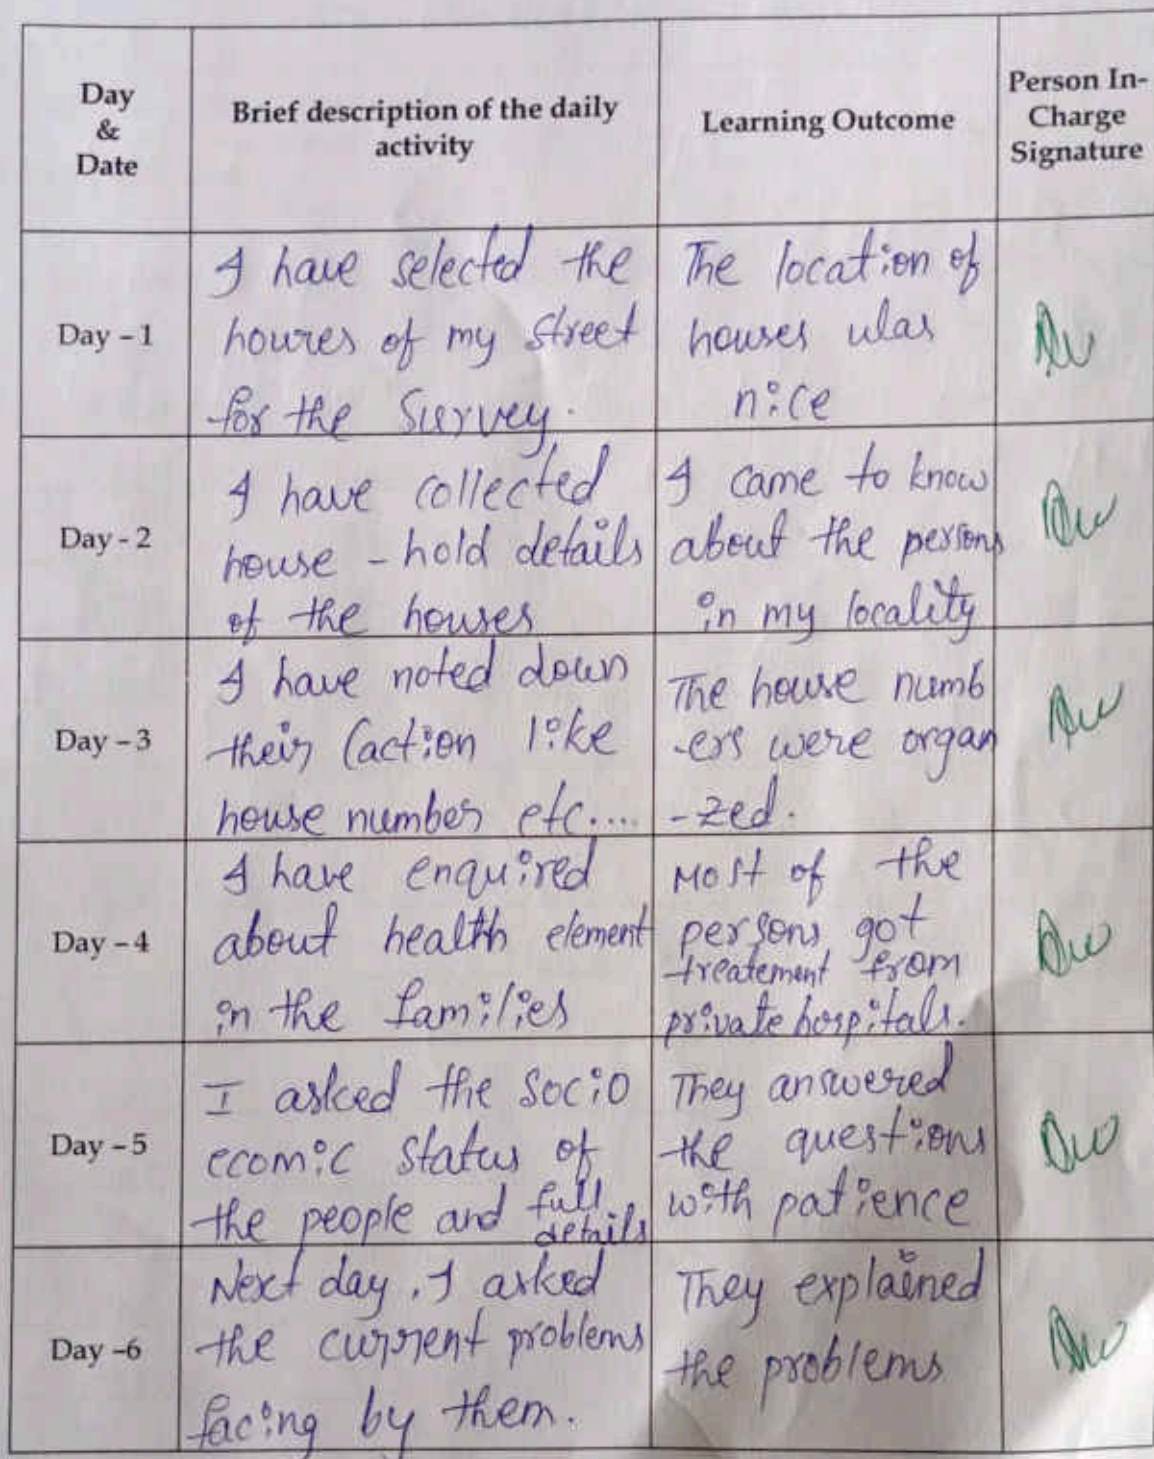 Day
&
Date
Brief description of the daily
activity
Learning Outcome
Person In-
Charge
Signature
Day – 1
I have selected the
houses of my street
for the survey.
The location of
houses was
nice
Day - 2
I have collected
house - hold details
of the houses
I came to know
about the persons
in my locality
Day – 3
I have noted down
their (action like
house number etc....
The house numb
-ers were organ
-zed.
Day – 4
I have enquired
about health element
in the families
Most of the
persons got
treatement from
private hospitals.
Day – 5
I asked the socio
ecomic status of
the people and full
details
They answered
the questions
with patience
Day –6
Next day, I asked
the current problems
facing by them.
They explained
the problems